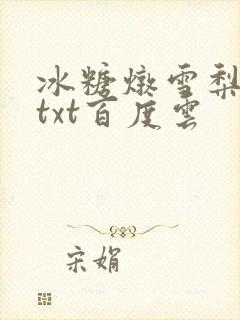 冰糖燉雪梨
txt百度雲
宋娟